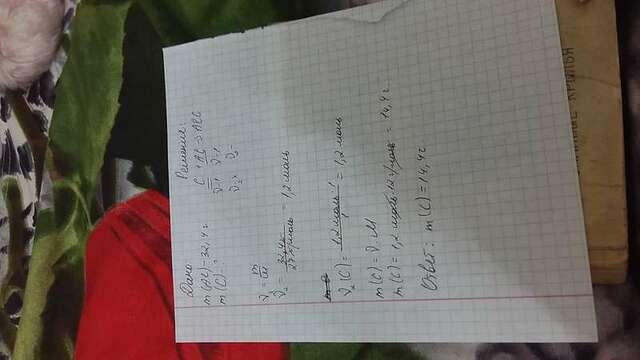 Дано
Решение:
m(Al)=32,4 г
m(C)-?
C + Al → AlC
ν=1 ν=1
ν₂=x ν₂=
ν = m/M
ν₂ = 32,4г/27 г/моль = 1,2 моль
ν₂(C) = 1,2 моль·1/1 = 1,2 моль
m(C) = ν·M
m(C) = 1,2 моль·12 г/моль = 14,4 г.
Ответ: m(C) = 14,4г
КРЫЛЬЯ